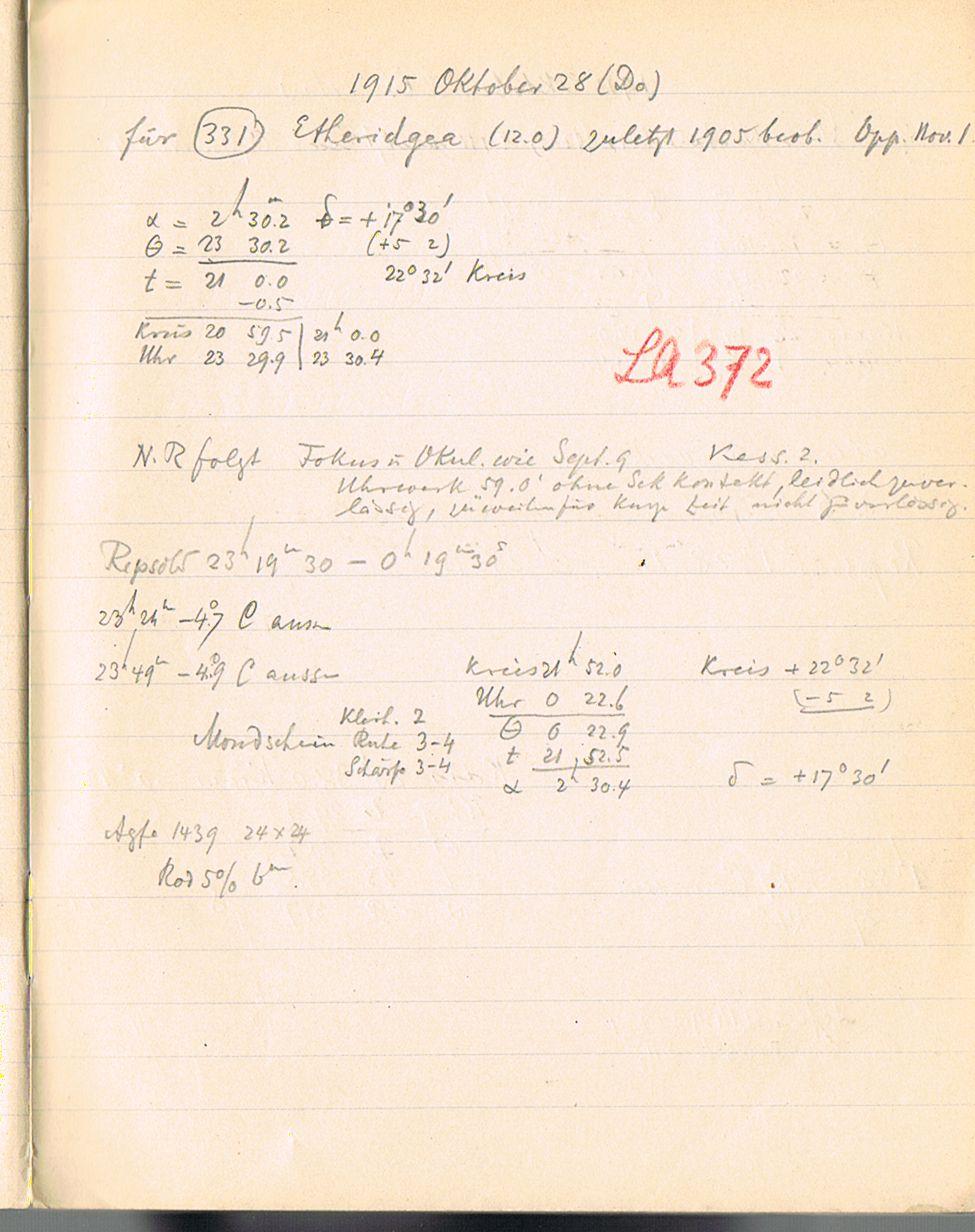 1915 Oktober 28 (Do)
für (331) Etheridgea (12.0) zuletzt 1905 beob. Opp. Nov. 1
α = 2h 30.2m δ = +17°30'
θ = 23 30.2 (+5 2)
t = 21 0.0 22° 32' Kreis
-0.5
Kreis 20 59.5 | 21h 0.0
Uhr 23 29.9 | 23 30.4
LA 372
N. R folgt Fokus u Okul. wie Sept. 9 Kass. 2.
Uhrwerk 59.0' ohne Sek Kontakt, leidlich zuver-
lässig, für kurze Zeit nicht zuverlässig.
Repsold 23h 19m 30 – 0h 19m 30s
23h 24m –4°.7 C aussen
23h 49m –4°.9 C aussen Kreis 21h 52.0 Kreis +22° 32'
Uhr 0 22.6 (–5 2)
Klarh. 2 θ 0 22.9
Mondschein Ruhe 3-4 t 21 52.5
Schärfe 3-4 α 2h 30.4 δ = +17° 30'
Agfa 1439 24×24
Rod 5% 6m.